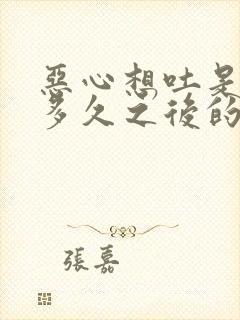 惡心想吐是
多久之後的
張嘉